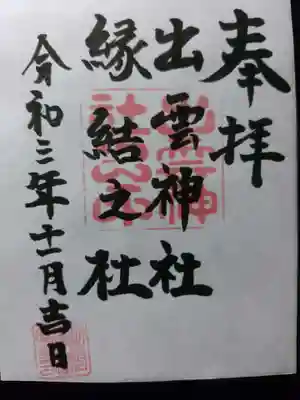 奉拝
出雲神社
縁結之杜
令和三年十一月吉日